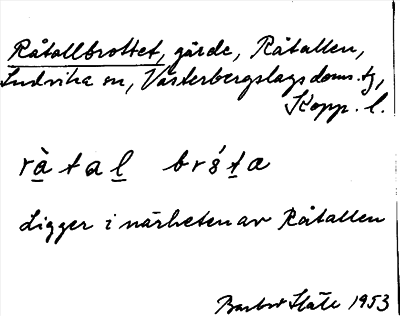 Råtallbrottet, gärde, Råtallen,
Ludvika sn, Västerbergslags doms. tg,
Kopp. l.
rà̱taḻ brśṯa
Ligger i närheten av Råtallen
1953